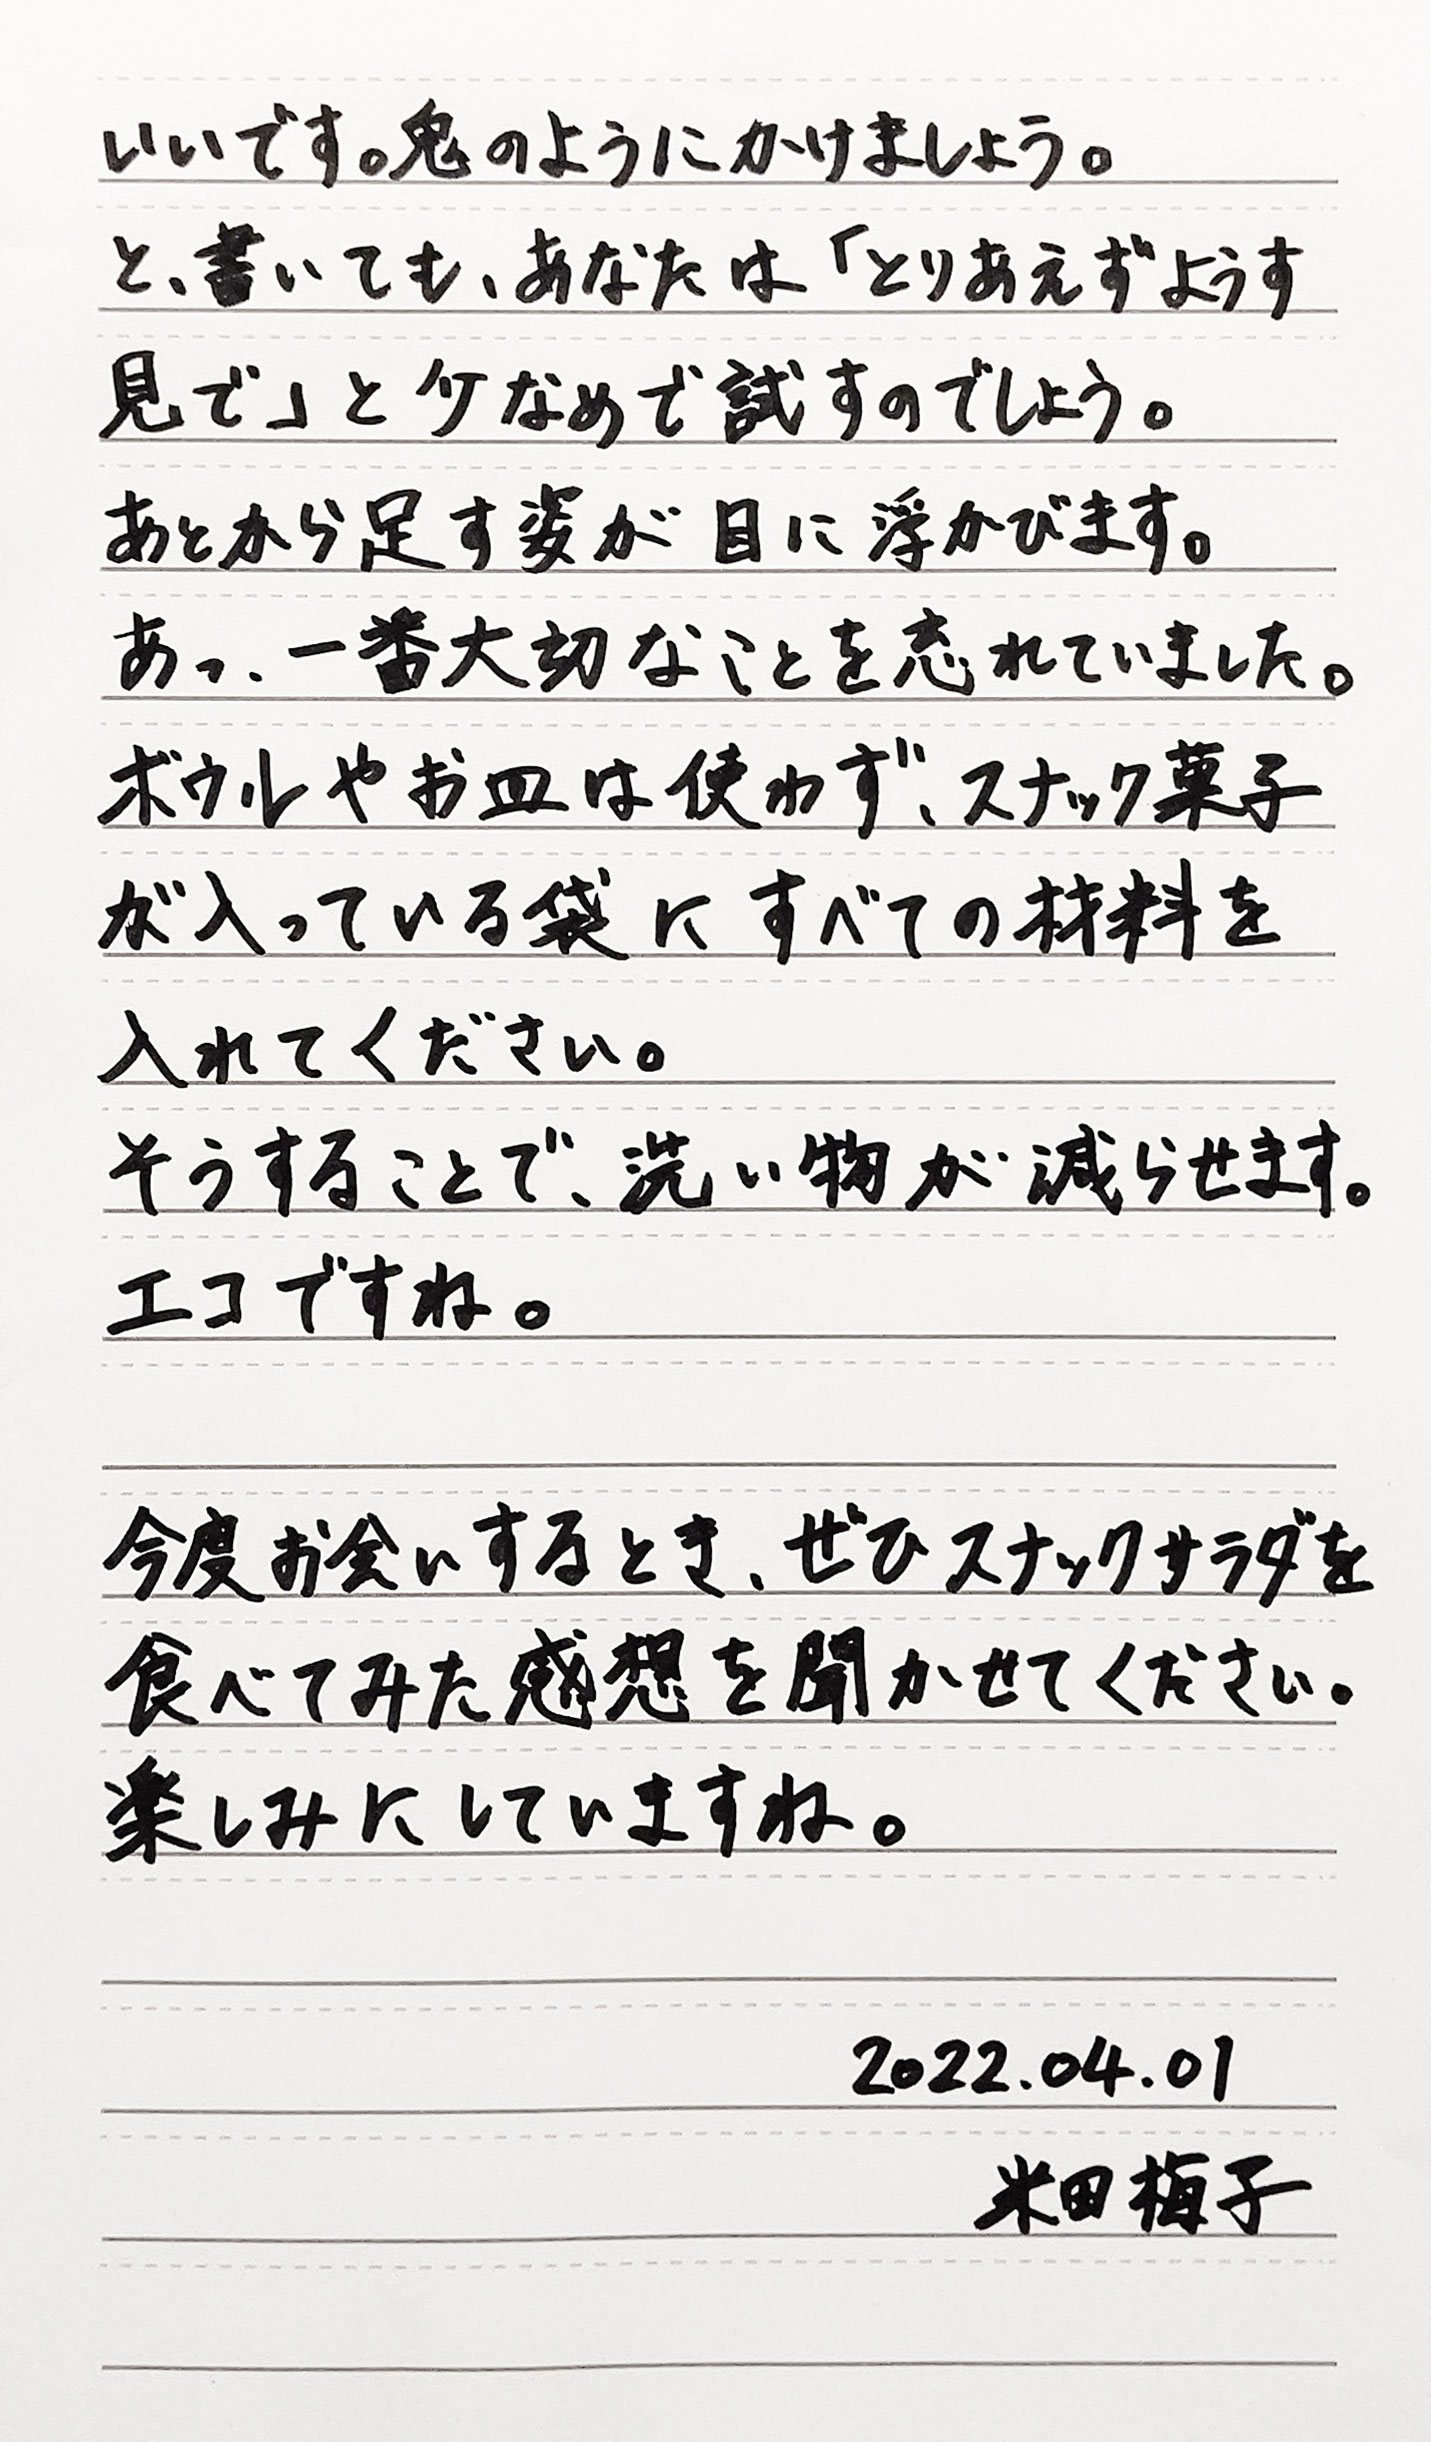 いいです。鬼のようにかけましょう。
と、書いても、あなたは「とりあえずようす
見で」と少なめで試すのでしょう。
あとから足す姿が目に浮かびます。
あっ、一番大切なことを忘れていました。
ボウルやお皿は使わず、スナック菓子
が入っている袋にすべての材料を
入れてください。
そうすることで、洗い物が減らせます。
エコですね。
今度お会いするとき、ぜひスナックサラダを
食べてみた感想を聞かせてください。
楽しみにしていますね。
2022.04.01
米田梅子